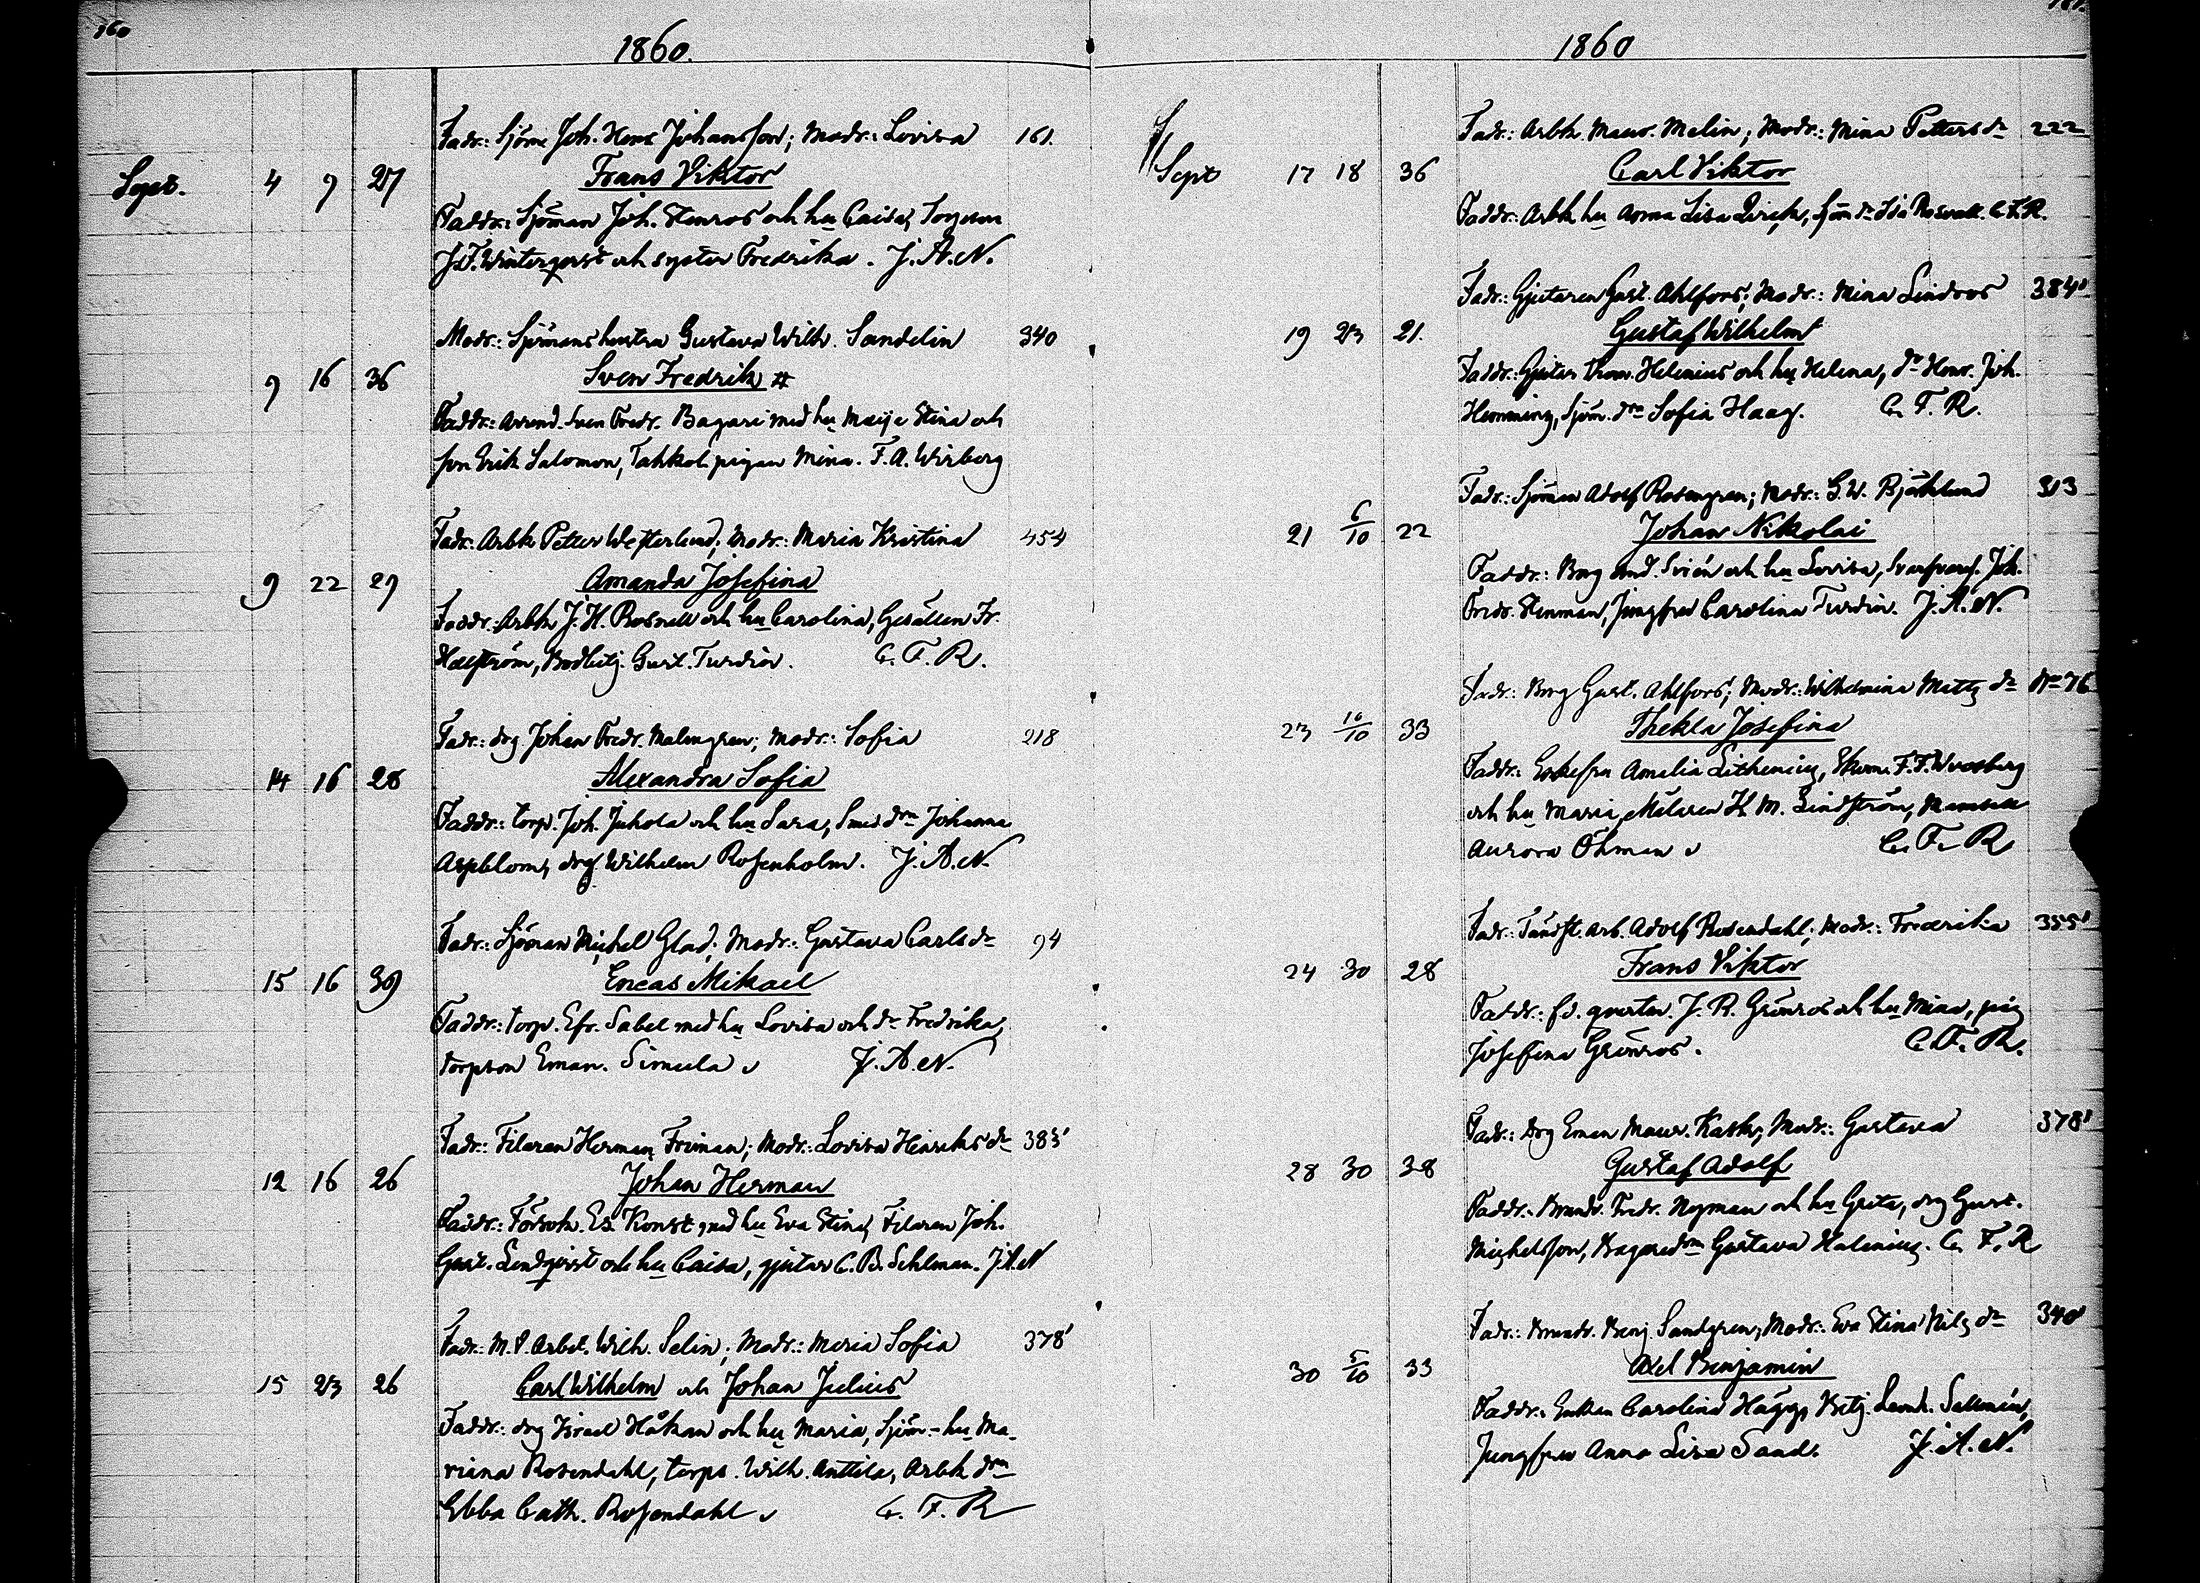 160
1860.
Fadr: Sjöm Joh. Henr Johansson; Modr: Lovisa 161.
Sept. 4 9 27 Frans Viktor
Faddr: Sjöman Joh. Stenros och hu Caisa, Torpson
J.F. Wintergvist och syster Fredrika. J. A. N.
Modr: Sjömans hustru Gustava Wilh. Sandelin 340
9 16 36 Sven Fredrik #
Faddr: Arrend. Sven Fredr. Bagare med hu Maija Stina och
son Erik Salomon, Tahkol pigan Mina. F. A. Wirberg
Fadr: Arbk Petter Westerlund; Modr: Maria Kristina 454
9 22 29 Amanda Josefina
Faddr: Arbk J. H. Rosnell och hu Carolina, Gesällen Fr.
Hellström, Gust. Turdin. C. F. R.
Fadr: drg Johan Fredr. Malmgren; Modr: Sofia 218
14 16 28 Alexandra Sofia
Faddr: torp. Joh. Juhola och hu Sara, Smed drn Johanna
Aspblom, drg Wilhelm Rosenholm. J. A. N.
Fadr: Sjöman Michel Glad; Modr: Gustava Carlsdr 94
15 16 39 Eneas Mikael
Faddr: torp. Efr. Sabel med hu Lovisa och dr Fredrika,
torpson Eman. Simula J. A. N.
Fadr: Filaren Herman Friman; Modr: Lovisa Hinriksdr 385'
12 16 26 Johan Herman
Faddr: Försvk. Es. Konst med hu Eva Stina, Filaren Joh.
Gust. Lindqvist och hu Caisa, gjutar C. B. Sehlman. J. A. N
Fadr: M. V. Arbet. Wilh. Selin; Modr: Maria Sofia 378'
15 23 26 Carl Wilhelm och Johan Julius
Faddr: drg Israel Håkan och hu Maria, Sjöm-hu Ma-
riana Rosendahl, torps. Wilh. Anttila, Arbk drn
Ebba Cath. Rosendahl C. F. R
161.
1860
Fadr: Arbk Maur. Melin; Modr: Mina Pettersdr 222
Sept 17 18 36 Carl Viktor
Faddr: Arbk hu Anna Lisa Qvick, Sjöm dr Ida Rosvall. C. F. R.
Fadr: Gjutaren Gust. Ahlfors; Modr: Mina Lindros 384'
19 23 21. Gustaf Wilhelm
Faddr: Gjutar Thom. Helenius och hu Helena, dr Henr. Joh.
Hemming, Sjöm. drn Sofia Haag. C. F. R.
Fadr: Sjöman Adolf Rosengren; Modr: G. W. Björklund 313
21 6/10 22 Johan Nikolai
Faddr: And. Svién och hu Lovisa, Joh.
Fredr. Stenman, Jungfru Carolina Turdin. J. A. N.
Fadr: Borg Gust. Ahlfors; Modr: Wilhelmina Matts dr No 76
23 16/10 33 Thekla Josefina
Faddr: Enkefru Amelia Lithenius, F. F. Wessberg
och hu Maria, Målaren H. M. Lindström, Mamsell
Aurora Öhman C. F. R
Fadr: Tändst. Arb. Adolf Rosendahl; Modr: Fredrika 355'
24 30 28 Frans Viktor
Faddr: fd. J. R. Grönros och hu Mina, pig
Josefina Grönros. C. F. R.
Fadr: Drg Eman Maur. Kask; Modr: Gustava 378'
28 30 38 Gustaf Adolf
Faddr: Brandv. Fredr. Nyman och hu Greta, drg Gust.
Michelsson, Bagaredrn Gustava Halenius. C. F. R
Fadr: Brandv. Benj Sandgren; Modr: Eva Stina Nils dr 340'
30 5/10 33 Axel Benjamin
Faddr: Enkan Carolina Hägg, Betj. Leond. Sallmén,
Jungfru Anna Lisa Sand. J. A. N.